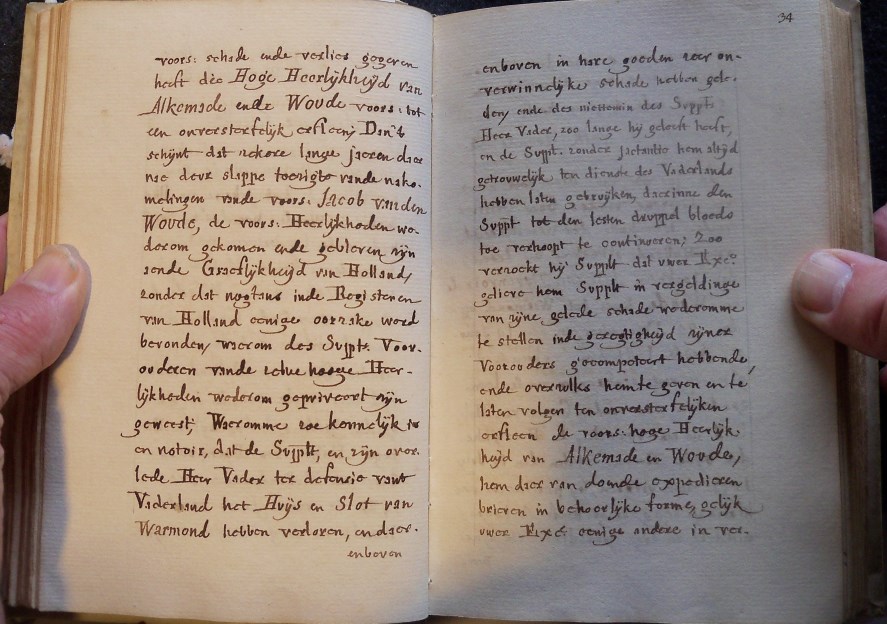 voors: schade ende verlies gegeven
heeft die Hoge Heerlijkheijd van
Alkemade ende Woude voors: tot
een onversterfelijk erfleen; Dan't
schijnt dat zekere lange jaeren daer
nae deur slappe toezigte vande nako-
melingen vande voors: Jacob vanden
Woude, de voors: Heerlijkheden we-
derom gekomen ende gebleven zijn
aende Graeflijkheijd van Holland,
zonder dat nogtans inde Registeren
van Holland eenige oorzake werd
bevonden, waerom des Supplts Voor-
ouderen vande zelve hooge Heer-
lijkheden wederom gepriveert zijn
geweest; Waeromme zoe kennelijk is
en notoir, dat de Supplt, en zijn over-
lede Heer Vader ter defensie vant
Vaderland het Huijs en Slot van
Warmond hebben verloren, en daer-
enboven
34
enboven in hare goeden zeer on-
verwinnelijke schade hebben gele-
den, ende des niettemin des Supplts
Heer Vader, zoo lange hij geleeft heeft,
en de Supplt. zonder jactantie hem altijd
getrouwelijk ten dienste des Vaderlands
hebben laten gebruijken, daerinne den
Supplt tot den lesten druppel bloeds
toe verhoopt te continueren; Zoo
verzoekt hij Supplt dat uwer Exce
gelieve hem Supplt in vergeldinge
van zijne gelede schade wederomme
te stellen inde geregtigheijd zijner
Voorouders g'ecompeteert hebbende,
ende overzulks hem te geven en te
laten volgen ten onversterfelijken
erfleen de voors: hoge Heerlijk-
heijd van Alkemade en Woude,
hem daer van doende expedieren
brieven in behoorlijke forme, gelijk
uwer Exce eenige andere in ver-